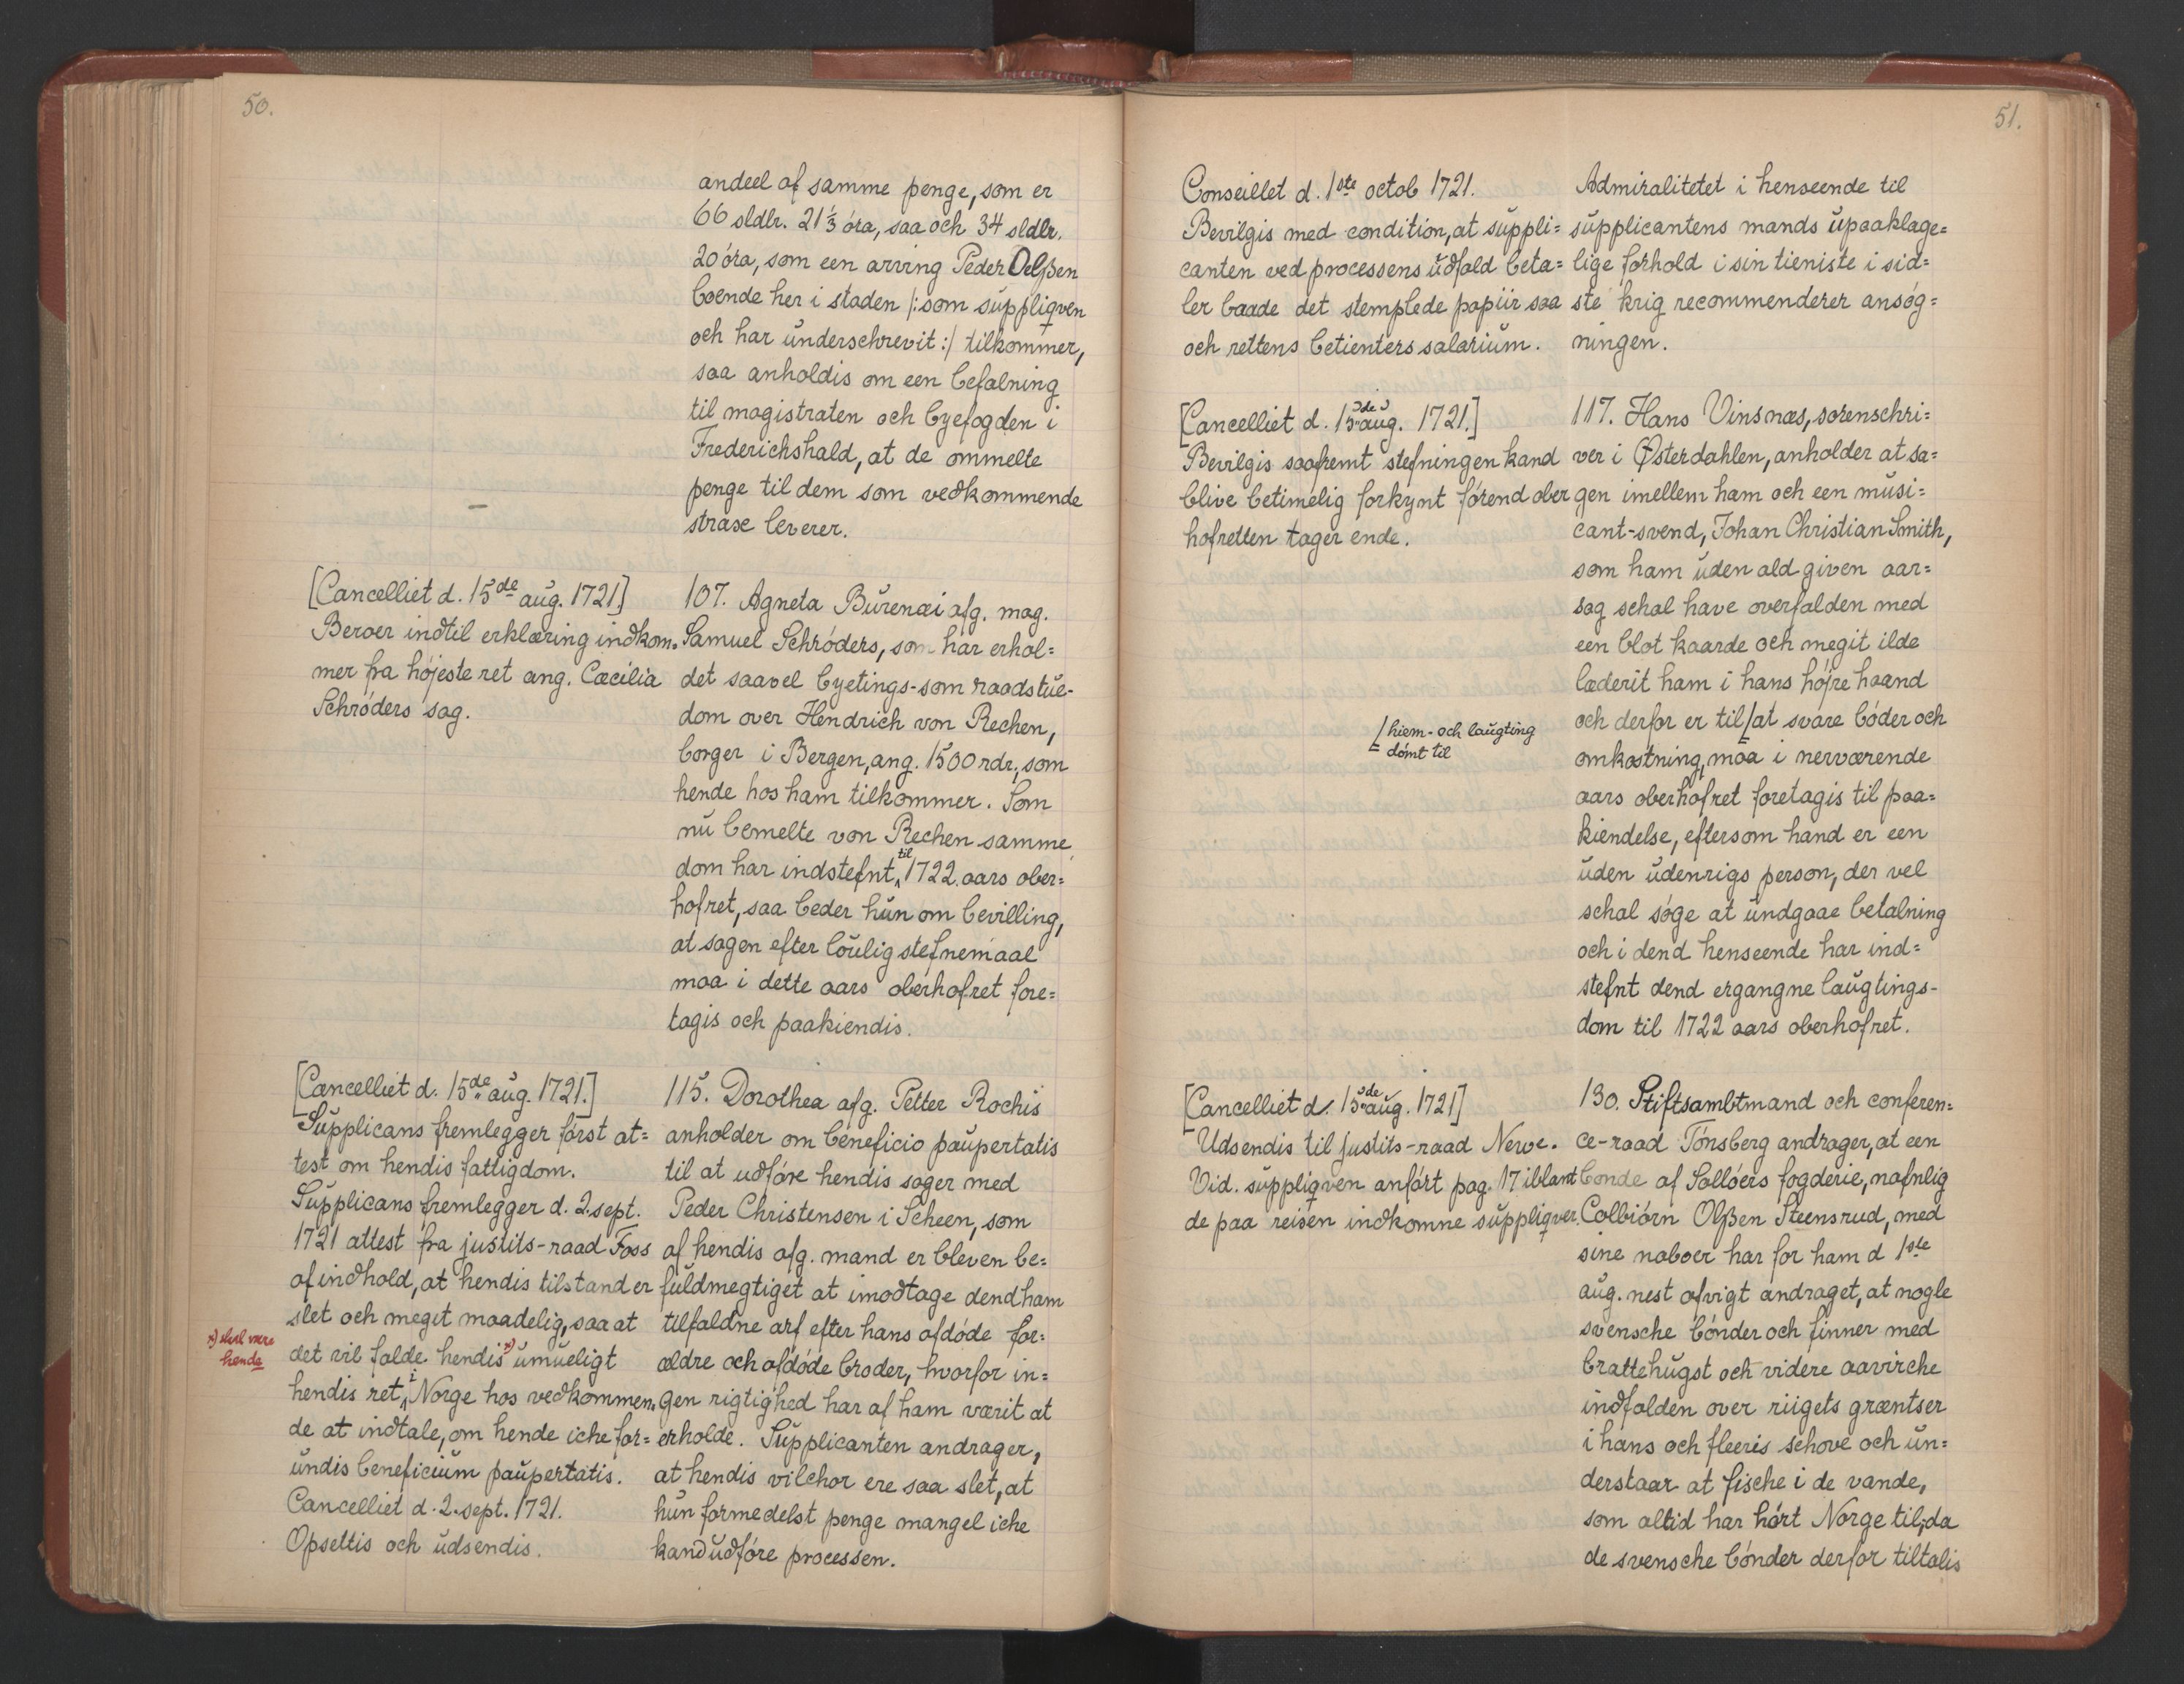 50.
andeel af samme penge, som er
66 sldlr. 21⅓ óra, saa och 34 sldlr.
20 óra, som een arving Peder Oelßen
boende her i staden /: som suppliqven
och har underschrevit :/ tilkommer,
saa anholdis om een befalning
til magistraten och byefogden i
Frederichshald, at de ommelte
penge til dem som vedkommende
straxe leverer.
—
[Cancelliet d. 15de aug. 1721]
Beroer indtil erklæring indkom-
mer fra højeste ret ang. Cæcilia
Schróders sag.
107. Agneta Burenæi afg. mag.
Samuel Schróders, som har erhol=
det saavel byetings- som raadstue-
dom over Hendrich von Rechen,
borger i Bergen, ang. 1500 rdr., som
hende hos ham tilkommer. Som
nu bemelte von Rechen samme
dom har indstefnt til 1722 aars ober=
hofret, saa beder hun om bevilling,
at sagen efter loulig stefnemaal
maa i dette aars oberhofret fore=
tagis och paakiendis.
[Cancelliet d. 15de aug. 1721.]
Supplicans fremlegger først at=
test om hendis fattigdom.
Supplicans fremlegger d. 2. sept.
1721 attest fra justits-raad Foss
af indhold, at hendis tilstand er
slet och meget maadelig, saa at
det vil falde hendis x) umueligt
hendis ret i Norge hos vedkommen-
de at indtale, om hende iche for=
undis beneficium paupertatis.
Cancelliet d. 2. sept. 1721.
Opsettis och udsendis.
x) skal være
hende
115. Dorothea afg. Petter Rochis
anholder om beneficio paupertatis
til at udføre hendis sager med
Peder Christensen i Scheen, som
af hendis afg. mand er bleven be=
fuldmegtiget at imodtage dend ham
tilfaldne arf efter hans afdóde for=
ældre och afdóde broder, hvorfor in=
gen rigtighed har af ham værit at
erholde. Supplicanten andrager,
at hendis vilchor ere saa slet, at
hun formedelst penge mangel iche
kand udfóre processen.
51.
Conseillet d. 1ste octob 1721.
Bevilgis med condition, at suppli=
canten ved processens udfald beta=
ler baade det stemplede papiir saa
och rettens betienters salarium.
Admiralitetet i henseende til
supplicantens mands upaaklage=
lige forhold i sin tieniste i sid=
ste krig recommenderer ansóg=
ningen.
[Cancelliet d. 15de aug. 1721.]
Bevilgis saafremt stefningen kand
blive betimelig forkynt fórend ober
hofretten tager ende.
117. Hans Vinsnæs, sorenschri=
ver i Østerdahlen, anholder at sa=
gen imellem ham och een musi=
cant-svend, Johan Christian Smith,
som ham uden ald given aar=
sag schal have overfalden med
een blot kaarde och megit ilde
læderit ham i hans højre haand
och derfor er til/at svare bóder och
omkostning, maa i nerværende
aars oberhofret foretagis til paa=
kiendelse, eftersom hand er een
uden udenrigs person, der vel
schal sóge at undgaae betalning
och i dend henseende har ind=
stefnt dend ergangne laugtings-
dom til 1722 aars oberhofret.
/ hiem- och laugting
dómt til
[Cancelliet d. 15de aug. 1721]
Udsendis til justits-raad Neve.
Vid. suppliqven anfórt pag. 17 iblant
de paa reisen indkomne suppliqver.
130. Stiftsambtmand och conferen=
ce-raad Tónsberg andrager, at een
bonde af Sollóers fogderie, nafnlig
Colbiórn Olßen Steensrud, med
sine naboer har for ham d 1ste
aug. nest afvigt andraget, at nogle
svensche bónder och finner med
brattehugst och videre aavirche
indfalden over riigets grentser
i hans och fleeris schove och un=
derstaar at fische i de vande,
som altid har hórt Norge til; da
de svensche bónder derfor tiltalis